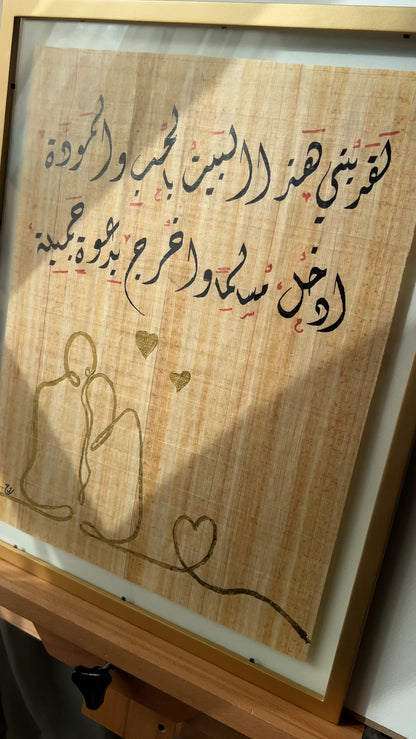 لَقَد بُنِيَ هَذا البَيتُ بِالحُبِّ والمَوَدَّة
ادخُل مُسالِمًا واخرُج بِدَعوَةٍ جَميلَة